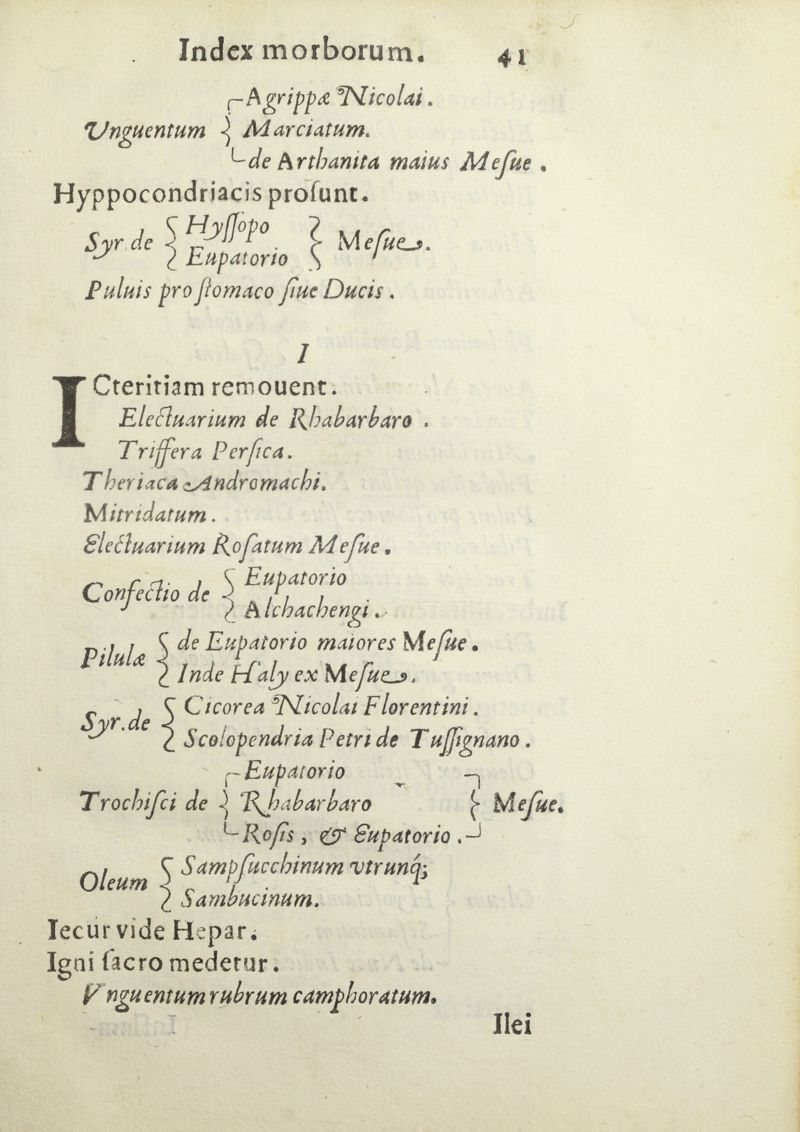 Index morborum. 41
Agrippæ Nicolai.
Vnguentum Marciatum.
de Arthanita maius Meſue.
Hyppocondriacis proſunt.
Hyſſopo
Syr. de Meſue.
Eupatorio
Puluis pro ſtomaco ſiue Ducis.
I
ICteritiam remouent.
Electuarium de Rhabarbaro.
Triffera Perſica.
Theriaca Andromachi.
Mitridatum.
Electuarium Roſatum Meſue.
Eupatorio
Confectio de
Alchachengi.
de Eupatorio maiores Meſue.
Pilulæ
Inde Haly ex Meſue.
Cicorea Nicolai Florentini.
Syr. de
Scolopendria Petri de Tuſſignano.
Eupatorio
Trochiſci de Rhabarbaro Meſue.
Roſis, & Eupatorio.
Sampſucchinum vtrunq́;
Oleum
Sambucinum.
Iecur vide Hepar.
Igni ſacro medetur.
Vnguentum rubrum camphoratum.
Ilei